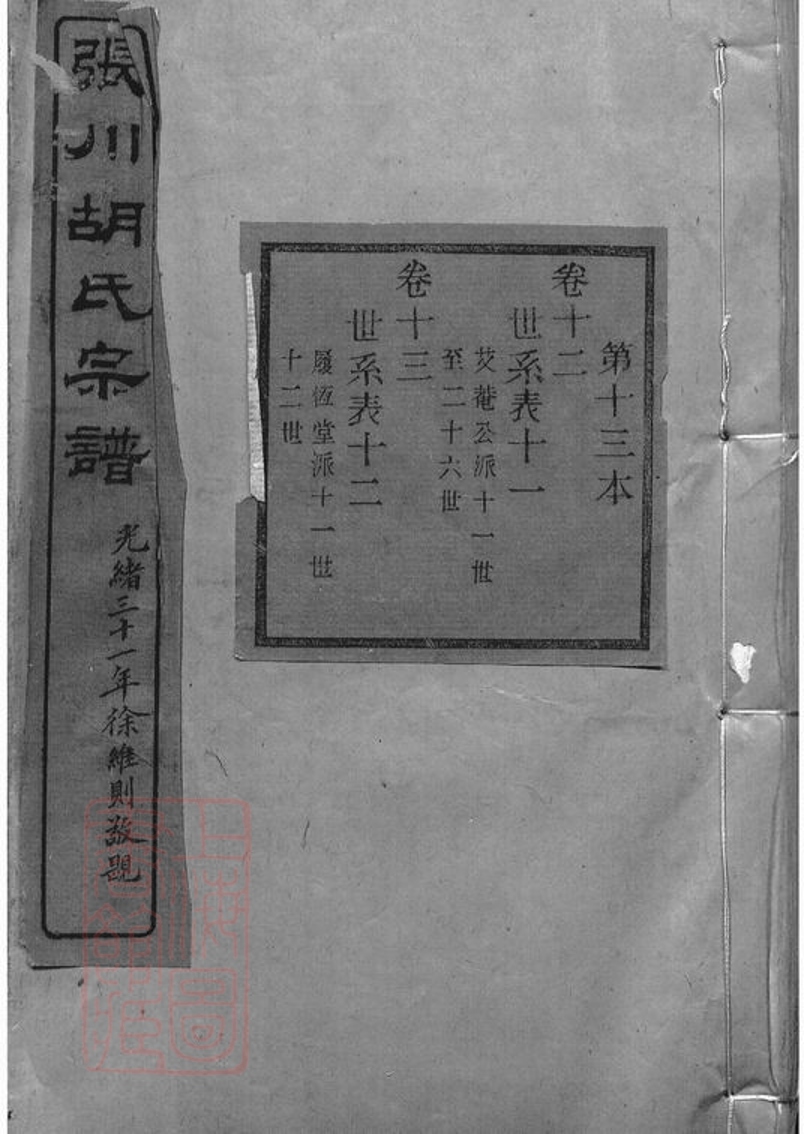 張川胡氏宗譜
光緒三十一年徐維則敬題
第十三本
卷十二
世系表十一
艾菴公派十一世
至二十六世
卷十三
世系表十二
履恆堂派十一世
十二世
上海圖書館藏